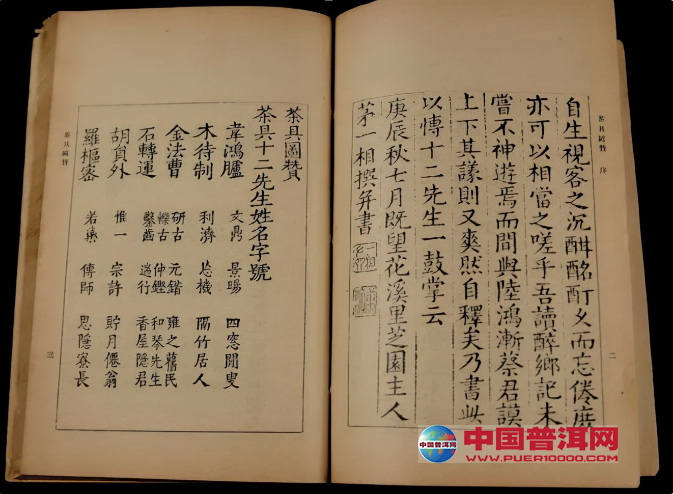 茶具圖贊 序
二
自生視客之沉酣酩酊久而忘倦庶
亦可以相當之嗟乎吾讀醉鄉記未
嘗不神遊焉而間與陸鴻漸蔡君謨
上下其議則又爽然自釋矣乃書此
以愽十二先生一鼓掌云
庚辰秋七月既望花溪里芝園主人
茅一相撰并書
茶具圖贊
茶具十二先生姓名字號
韋鴻臚 文鼎 景暘 四窓閒叟
木待制 利濟 忘機 隔竹居人
金法曹 研古 元鍇 雍之舊民
轢古 仲鏗 和琴先生
石轉運 鑿齒 遄行 香屋隱君
胡員外 惟一 宗許 貯月僊翁
羅樞密 若藥 傳師 思隱寮長
茶具圖贊
三
中国普洱网
WWW.PUER10000.COM